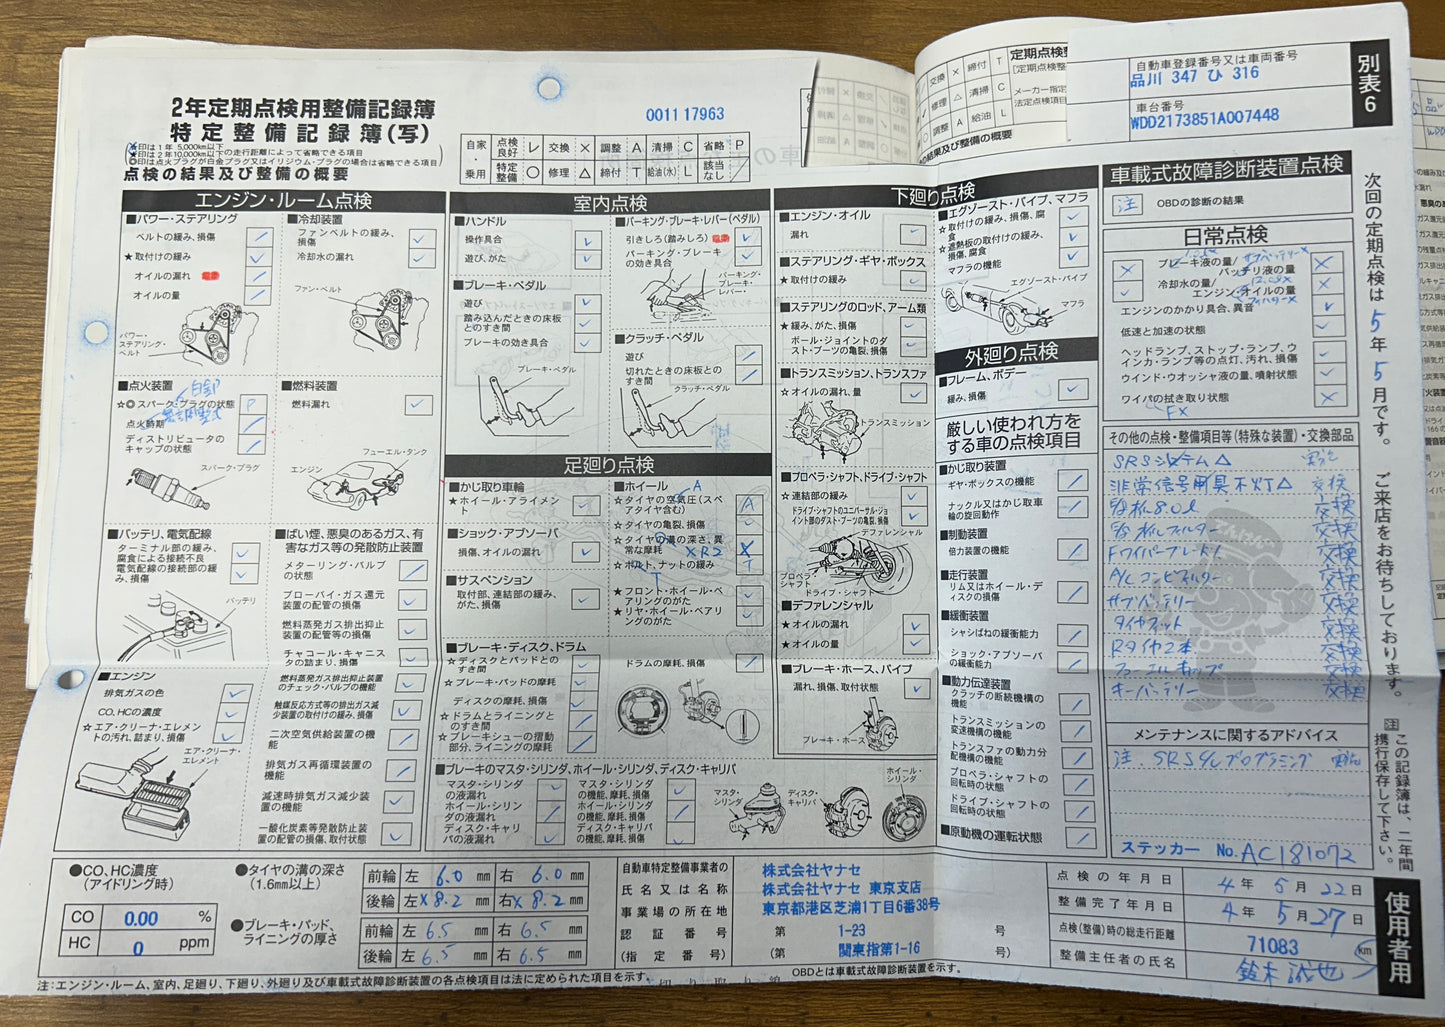 2年定期点検用整備記録簿
特定整備記録簿(写)
★印は1年 5,000km以下
★印は2年 10,000km以下の走行距離によって省略できる項目
◎印は点火プラグが白金プラグ又はイリジウム・プラグの場合は省略できる項目
点検の結果及び整備の概要
0011 17963
自家・乗用
点検良好 レ 交換 × 調整 A 清掃 C 省略 P
特定整備 ○ 修理 △ 締付 T 給油(水) L 該当なし /
自動車登録番号又は車両番号
品川 347 ひ 316
車台番号
WDD2173851A007448
別表6
エンジン・ルーム点検
■パワー・ステアリング
ベルトの緩み、損傷
★取付けの緩み
オイルの漏れ
オイルの量
パワー・ステアリング・ベルト
■冷却装置
ファンベルトの緩み、損傷
冷却水の漏れ
ファン・ベルト
■点火装置
白金
☆◎スパーク・プラグの状態 P
点火時期
ディストリビュータのキャップの状態
スパーク・プラグ
■燃料装置
燃料漏れ
フューエル・タンク
エンジン
■バッテリ、電気配線
ターミナル部の緩み、腐食による接続不良
電気配線の接続部の緩み、損傷
バッテリ
■ばい煙、悪臭のあるガス、有害なガス等の発散防止装置
メターリング・バルブの状態
ブローバイ・ガス還元装置の配管の損傷
燃料蒸発ガス排出抑止装置の配管等の損傷
チャコール・キャニスタの詰まり、損傷
燃料蒸発ガス排出抑止装置のチェック・バルブの機能
触媒反応方式等の排出ガス減少装置の取付けの緩み、損傷
二次空気供給装置の機能
排気ガス再循環装置の機能
減速時排気ガス減少装置の機能
一酸化炭素等発散防止装置の配管の損傷、取付状態
■エンジン
排気ガスの色
CO、HCの濃度
☆エア・クリーナ・エレメントの汚れ、詰まり、損傷
エア・クリーナ・エレメント
室内点検
■ハンドル
操作具合
遊び、がた
■ブレーキ・ペダル
遊び
踏み込んだときの床板とのすき間
ブレーキの効き具合
ブレーキ・ペダル
■パーキング・ブレーキ・レバー(ペダル)
引きしろ(踏みしろ)
パーキング・ブレーキの効き具合
パーキング・ブレーキ・レバー・
■クラッチ・ペダル
遊び
切れたときの床板とのすき間
クラッチ・ペダル
足廻り点検
■かじ取り車輪
★ホイール・アライメント
■ショック・アブソーバ
損傷、オイルの漏れ
■サスペンション
取付部、連結部の緩み、がた、損傷
■ホイール A
☆タイヤの空気圧(スペアタイヤ含む) A
☆タイヤの亀裂、損傷
☆タイヤの溝の深さ、異常な摩耗 ×R2 ×
☆ボルト、ナットの緩み T
T
★フロント・ホイール・ベアリングのがた
★リヤ・ホイール・ベアリングのがた
■ブレーキ・ディスク、ドラム
☆ディスクとパッドとのすき間
☆ブレーキ・パッドの摩耗
ディスクの摩耗、損傷
☆ドラムとライニングとのすき間
☆ブレーキシューの摺動部分、ライニングの摩耗
ドラムの摩耗、損傷
■ブレーキのマスタ・シリンダ、ホイール・シリンダ、ディスク・キャリパ
マスタ・シリンダの液漏れ
ホイール・シリンダの液漏れ
ディスク・キャリパの液漏れ
マスタ・シリンダの機能、摩耗、損傷
ホイール・シリンダの機能、摩耗、損傷
ディスク・キャリパの機能、摩耗、損傷
マスタ・シリンダ
ディスク・キャリパ
ホイール・シリンダ
下廻り点検
■エンジン・オイル
漏れ
■ステアリング・ギヤ・ボックス
★取付けの緩み
■ステアリングのロッド、アーム類
★緩み、がた、損傷
ボール・ジョイントのダスト・ブーツの亀裂、損傷
■トランスミッション、トランスファ
☆オイルの漏れ、量
トランスミッション
■プロペラ・シャフト、ドライブ・シャフト
★連結部の緩み
ドライブ・シャフトのユニバーサル・ジョイント部のダスト・ブーツの亀裂、損傷
デファレンシャル
プロペラ・シャフト
ドライブ・シャフト
■デファレンシャル
★オイルの漏れ
★オイルの量
■ブレーキ・ホース、パイプ
漏れ、損傷、取付状態
ブレーキ・ホース
■エグゾースト・パイプ、マフラ
☆取付けの緩み、損傷、腐食
☆遮熱板の取付けの緩み、損傷、腐食
マフラの機能
エグゾースト・パイプ
マフラ
外廻り点検
■フレーム、ボデー
緩み、損傷
厳しい使われ方をする車の点検項目
■かじ取り装置
ギヤ・ボックスの機能
ナックル又はかじ取車輪の旋回動作
■制動装置
倍力装置の機能
■走行装置
リム又はホイール・ディスクの損傷
■緩衝装置
シャシばねの緩衝能力
ショック・アブソーバの緩衝能力
■動力伝達装置
クラッチの断続機構の機能
トランスミッションの変速機構の機能
トランスファの動力分配機構の機能
プロペラ・シャフトの回転時の状態
ドライブ・シャフトの回転時の状態
■原動機の運転状態
車載式故障診断装置点検
注 OBDの診断の結果
日常点検
ブレーキ液の量/バッテリ液の量
冷却水の量/エンジン・オイルの量
エンジンのかかり具合、異音
低速と加速の状態
ヘッドランプ、ストップ・ランプ、ウインカ・ランプ等の点灯、汚れ、損傷
ウインド・ウオッシャ液の量、噴射状態
ワイパの拭き取り状態
FX
その他の点検・整備項目等(特殊な装置)・交換部品
SRSシステム△
非常信号用具不灯△ 交換
8.0l 交換
フィルター 交換
Fワイパーブレード 交換
A/Cコンビフィルター 交換
サブバッテリー 交換
交換
Rタイヤ2本 交換
交換
キーバッテリー 交換
メンテナンスに関するアドバイス
注.
ステッカー No.AC181072
次回の定期点検は5年5月です。 ご来店をお待ちしております。
注 この記録簿は、二年間携行保存して下さい。
使用者用
●CO、HC濃度(アイドリング時)
CO 0.00 %
HC 0 ppm
●タイヤの溝の深さ(1.6mm以上)
前輪 左 6.0 mm 右 6.0 mm
後輪 左 ×8.2 mm 右 ×8.2 mm
●ブレーキ・パッド、ライニングの厚さ
前輪 左 6.5 mm 右 6.5 mm
後輪 左 6.5 mm 右 6.5 mm
自動車特定整備事業者の
氏名又は名称
事業場の所在地
認証番号
(指定番号)
株式会社ヤナセ
株式会社ヤナセ 東京支店
東京都港区芝浦1丁目6番38号
第 1-23 号
(第 関東指第1-16 号)
点検の年月日 4年 5月22日
整備完了年月日 4年 5月27日
点検(整備)時の総走行距離 71083 km
整備主任者の氏名 鈴木 誠也
注:エンジン・ルーム、室内、足廻り、下廻り、外廻り及び車載式故障診断装置の各点検項目は法に定められた項目を示す。
OBDとは車載式故障診断装置を示す。